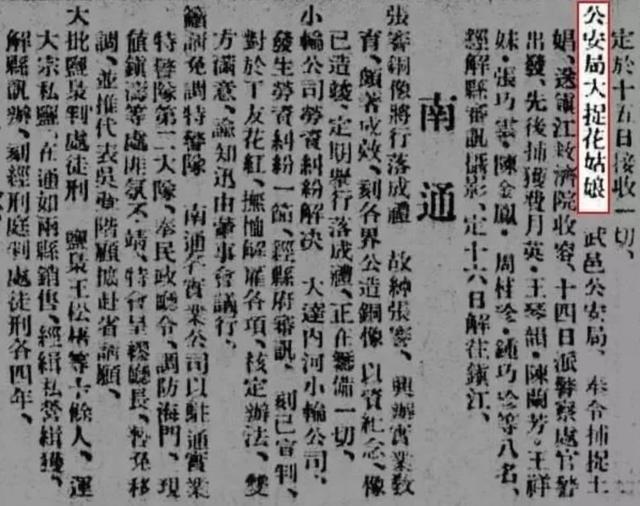 定於十五日接收一切、
公安局大捉花姑娘 武邑公安局、奉令捕捉土
娼、送鎮江救濟院收容、十四日派警察處官警
出發、先後捕獲費月英·王琴韻·陳蘭芳·王祥
妹·張巧雲·陳金鳳·周桂·巧等八名、
經解縣審訊攝影、定十六日解往鎮江、
南通
張謇銅像將行落成禮 故紳張謇、興辦實業教
育、頗著成效、刻各界公造銅像、以資紀念、像
已造竣、定期舉行落成禮、正在籌備一切、
小輪公司勞資糾紛解決 大達內河小輪公司、
發生勞資糾紛一節、經縣府審訊、刻已宣判、
對於工友花紅、撫恤解雇各項、核定辦法、雙
方滿意、諭知迅由董事會議行、
籲請免調特警隊 南通各實業公司以駐通實業
特警隊第二大隊、奉民政廳令、調防海門、現
值鎮濤等處匪氛不靖、特會呈繆廳長、暫免移
調、並推代表吳階顧赴省請願、
大批鹽梟判處徒刑 鹽梟王松等十餘人、運
大宗私鹽、在通如兩縣銷售、經緝私營緝獲、
解縣訊辦、刻經刑庭判處徒刑各四年、